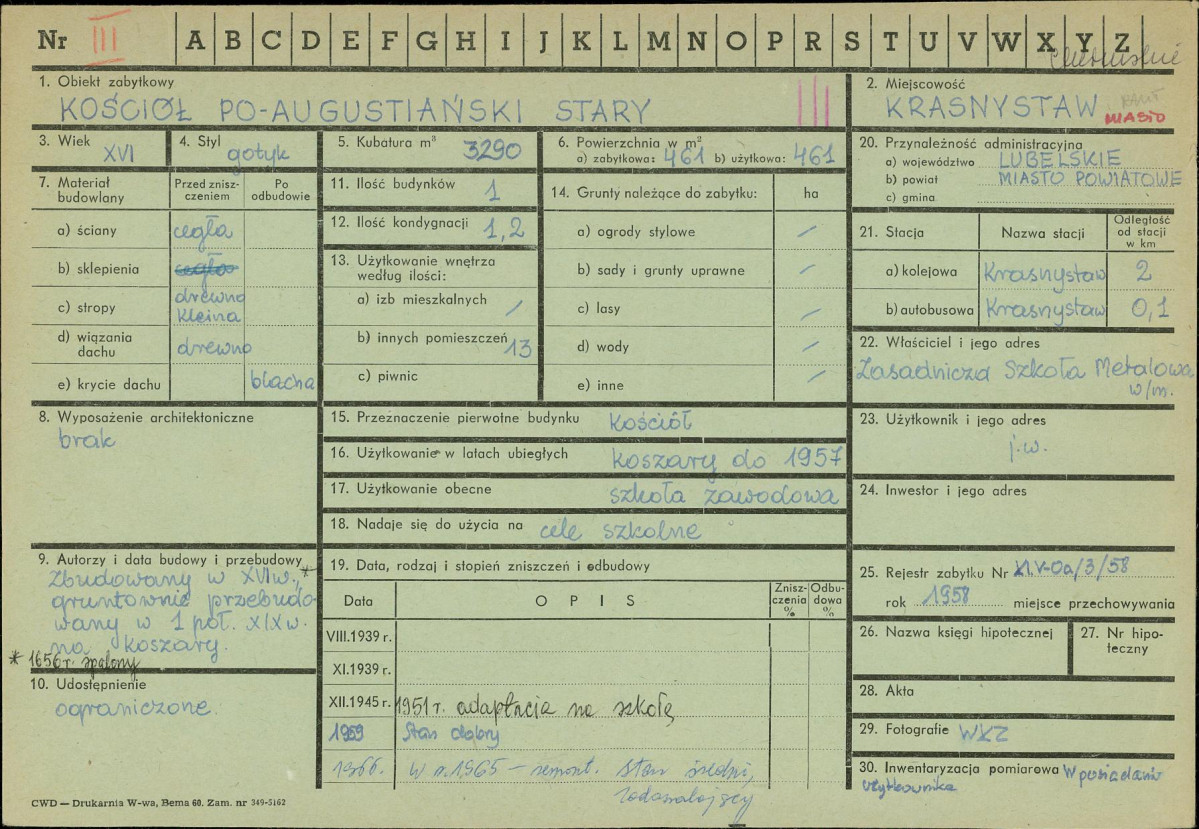 Nr III A B C D E F G H I J K L M N O P R S T U V W X Y Z
1. Obiekt zabytkowy
KOŚCIÓŁ PO-AUGUSTIAŃSKI STARY III
2. Miejscowość
KRASNYSTAW
MIASTO
3. Wiek
XVI
4. Styl
gotyk
5. Kubatura m³
3290
6. Powierzchnia w m²
a) zabytkowa: 461 b) użytkowa: 461
7. Materiał budowlany
Przed zniszczeniem
Po odbudowie
a) ściany cegła
b) sklepienia cegła
c) stropy drewno
Kleina
d) wiązania dachu drewno
e) krycie dachu blacha
8. Wyposażenie architektoniczne
brak
9. Autorzy i data budowy i przebudowy
Zbudowany w XVI w.,*
gruntownie przebudo-
wany w 1 poł. XIX w.
na koszary.
* 1656 r. spalony
10. Udostępnienie
ograniczone.
11. Ilość budynków 1
12. Ilość kondygnacji 1,2
13. Użytkowanie wnętrza
według ilości:
a) izb mieszkalnych /
b) innych pomieszczeń 13
c) piwnic
14. Grunty należące do zabytku: ha
a) ogrody stylowe /
b) sady i grunty uprawne /
c) lasy /
d) wody /
e) inne /
15. Przeznaczenie pierwotne budynku Kościół
16. Użytkowanie w latach ubiegłych koszary do 1957
17. Użytkowanie obecne szkoła zawodowa
18. Nadaje się do użycia na cele szkolne
19. Data, rodzaj i stopień zniszczeń i odbudowy
Data O P I S Znisz-
czenia
% Odbu-
dowa
%
VIII.1939 r.
XI.1939 r.
XII.1945 r. 1951 r. adaptacja na szkołę
1959 Stan dobry
1966. W r. 1965 – remont. Stan średni,
zadawalający
20. Przynależność administracyjna
a) województwo LUBELSKIE
b) powiat MIASTO POWIATOWE
c) gmina
21. Stacja Nazwa stacji Odległość
od stacji
w km
a) kolejowa Krasnystaw 2
b) autobusowa Krasnystaw 0,1
22. Właściciel i jego adres
Zasadnicza Szkoła Metalowa
w/m.
23. Użytkownik i jego adres
j.w.
24. Inwestor i jego adres
25. Rejestr zabytku Nr KL.V-0a/3/58
rok 1958 miejsce przechowywania
26. Nazwa księgi hipotecznej
27. Nr hipo-
teczny
28. Akta
29. Fotografie WKZ
30. Inwentaryzacja pomiarowa W posiadaniu
użytkownika
CWD — Drukarnia W-wa, Bema 60. Zam. nr 349-5162